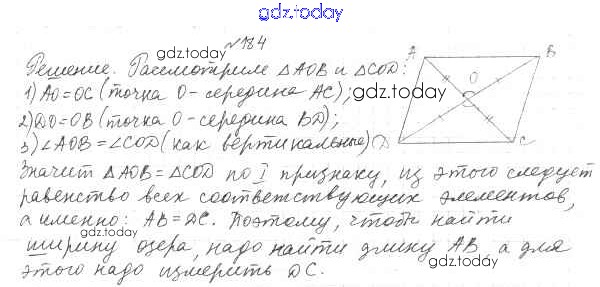 gdz.today
№ 184
gdz.today
Решение. Рассмотрим △AOB и △COD:
1) AO=OC (точка O-середина AC); gdz.today
2) DO=OB (точка O-середина BD);
3) ∠AOB=∠COD (как вертикальные)
A B
O
D C
Значит △AOB=△COD по I признаку, из этого следует
равенство всех соответствующих элементов,
а именно: AB=DC. Поэтому, чтобы найти
gdz.today
ширину озера, надо найти длину AB, а для
этого надо измерить DC.
gdz.today